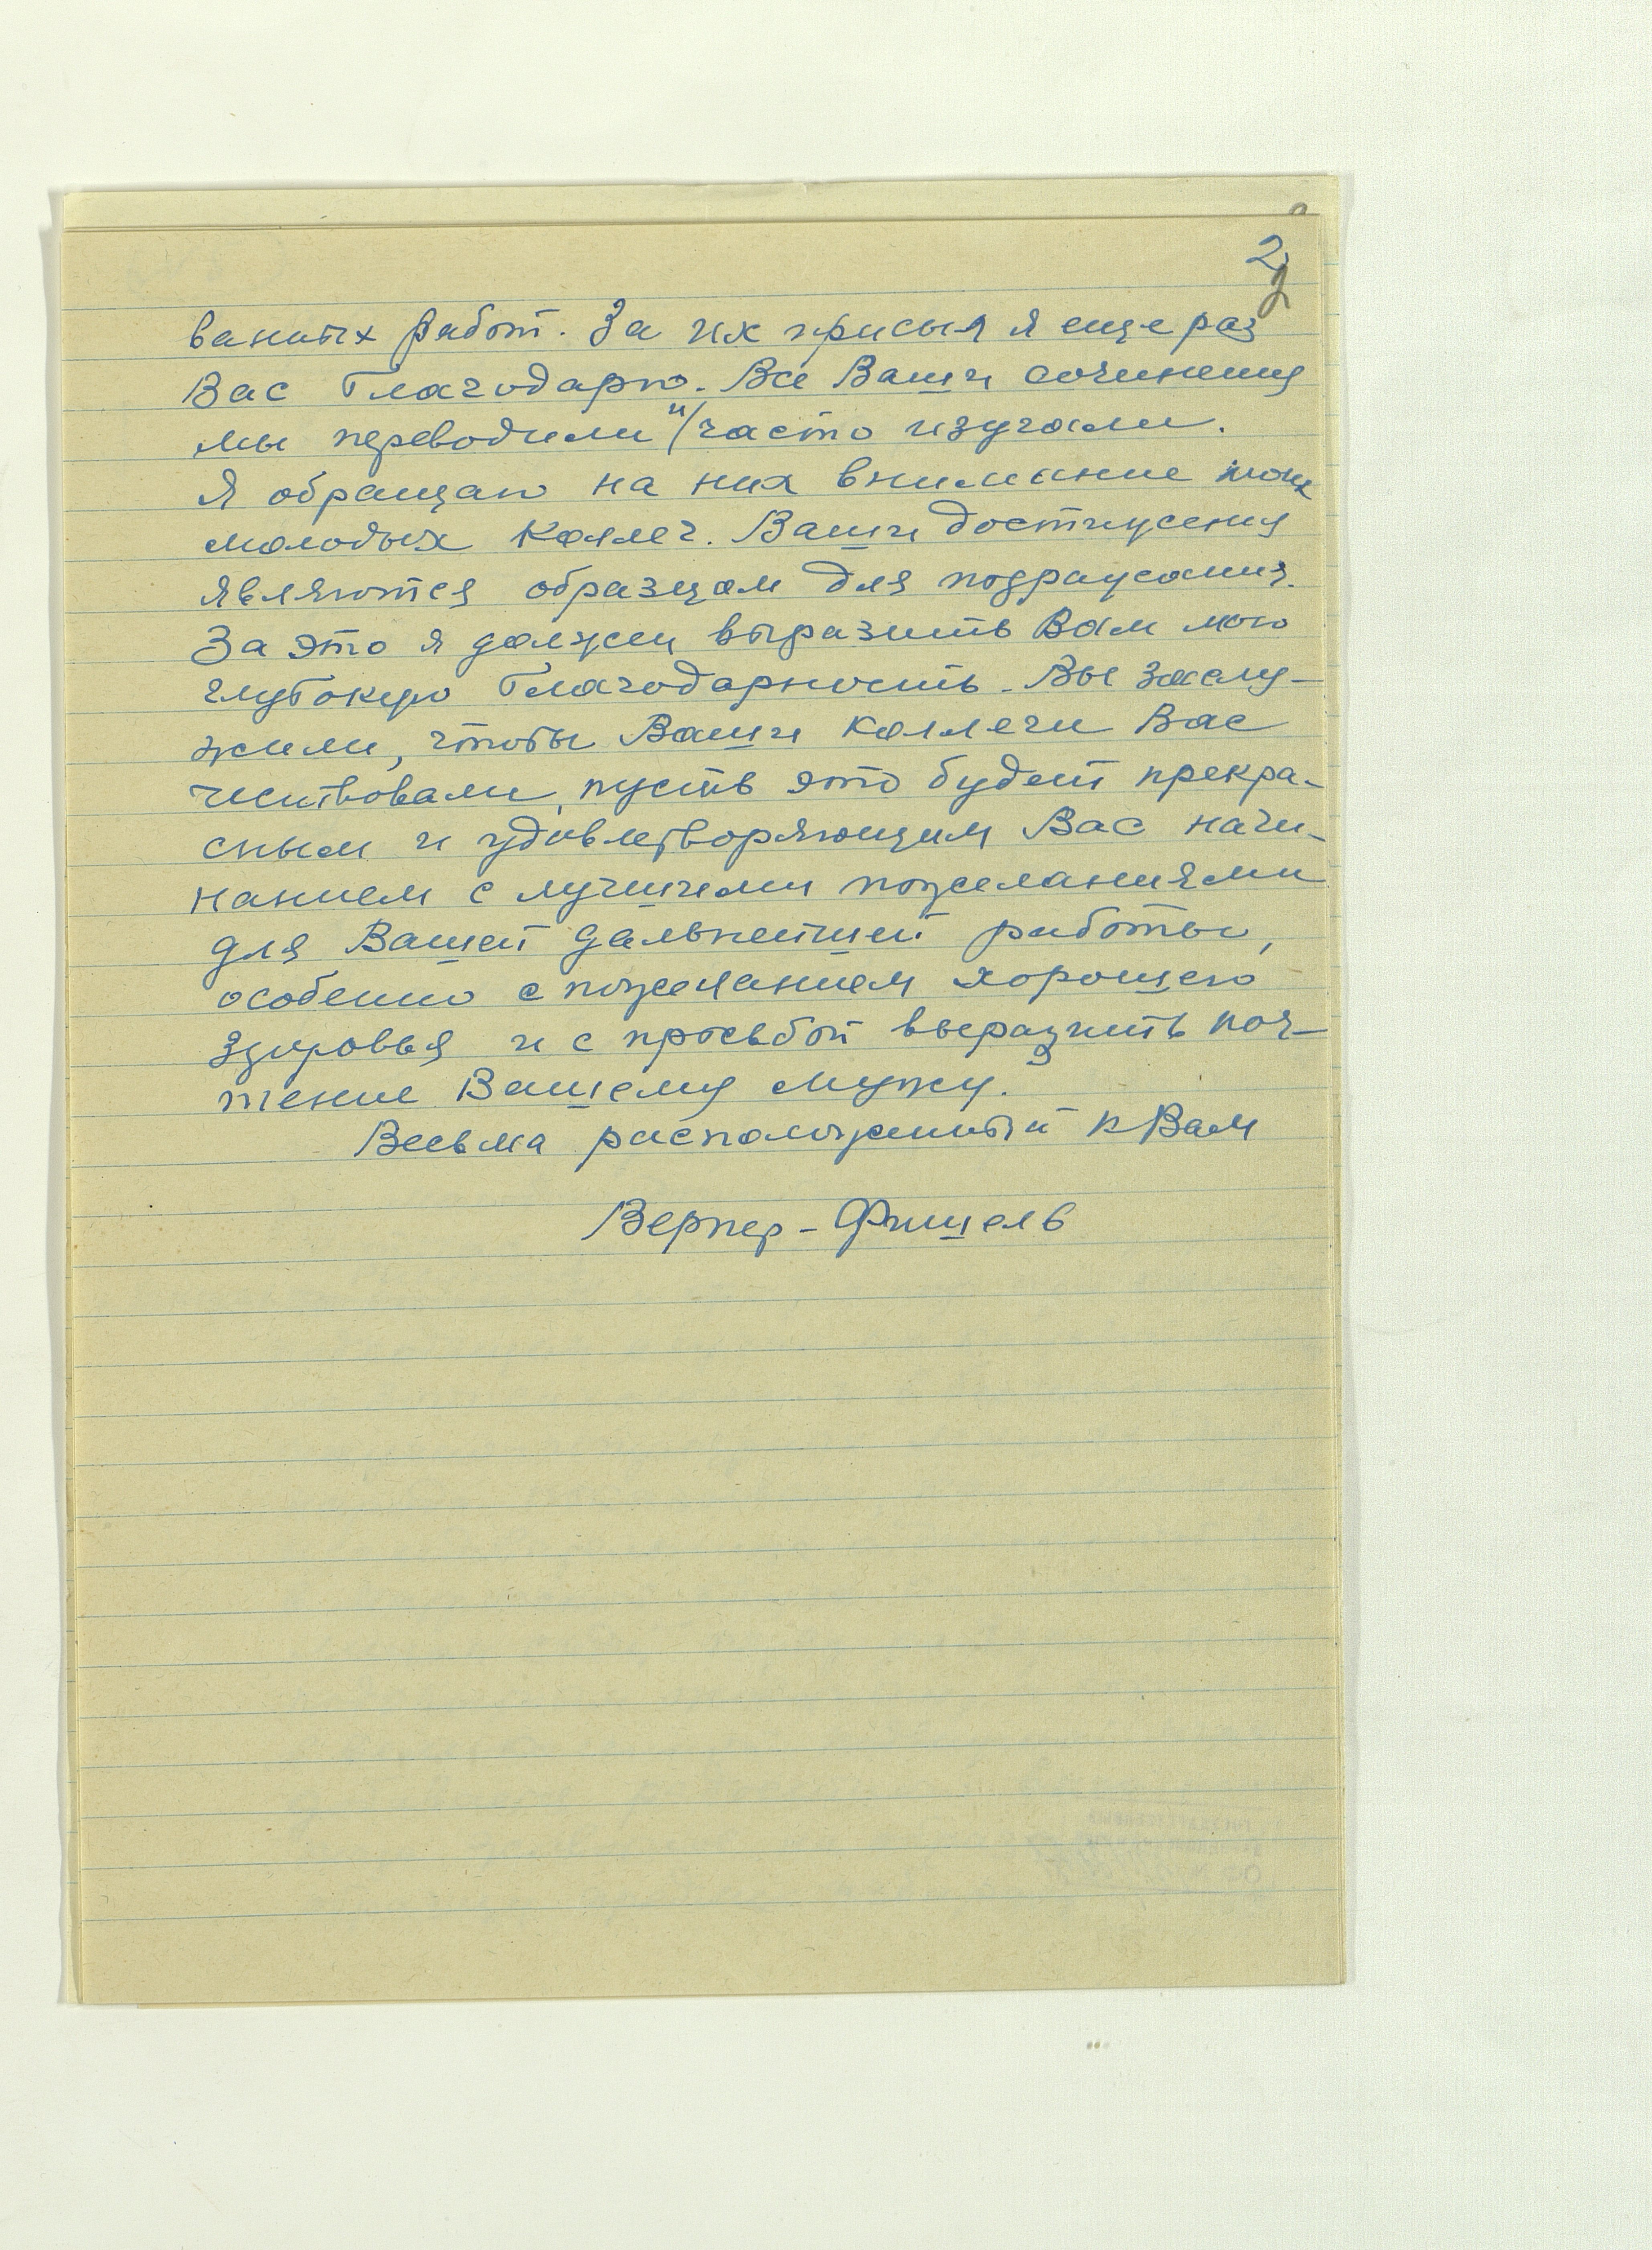 2
2
ванных работ. За их присыл я еще раз
Вас благодарю. Все Ваши сочинения
мы переводили и/ часто изучали.
Я обращаю на них внимание моих
молодых коллег. Ваши достижения
являются образцом для подражания.
За это я должен выразить Вам мою
глубокую благодарность. Вы заслу-
жили, чтобы Ваши коллеги Вас
чествовали, пусть это будет прекра-
сным и удовлетворяющим Вас начи-
нанием с лучшими пожеланиями
для Вашей дальнейшей работы,
особенно с пожеланием хорошего
здоровья и с просьбой выразить поч-
тение Вашему мужу.
Весьма расположенный к Вам
Вернер-Фишель